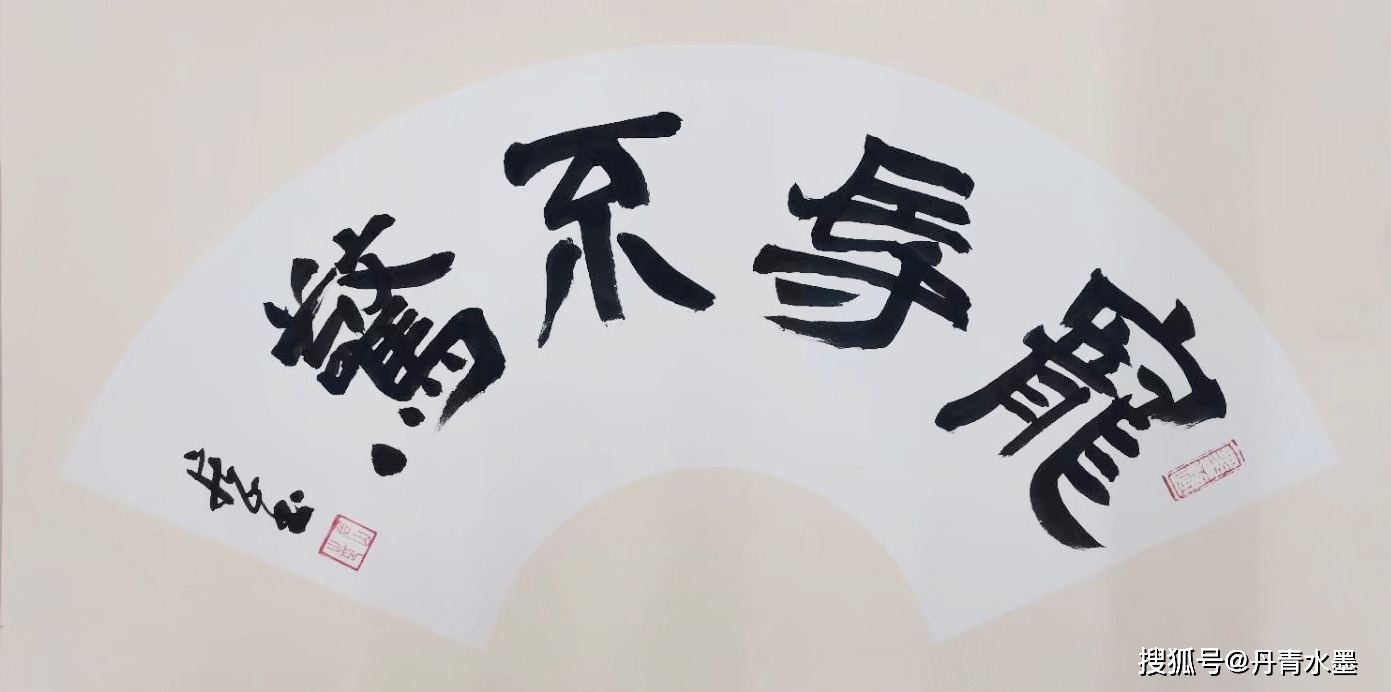 寵辱不驚
搜狐号@丹青水墨